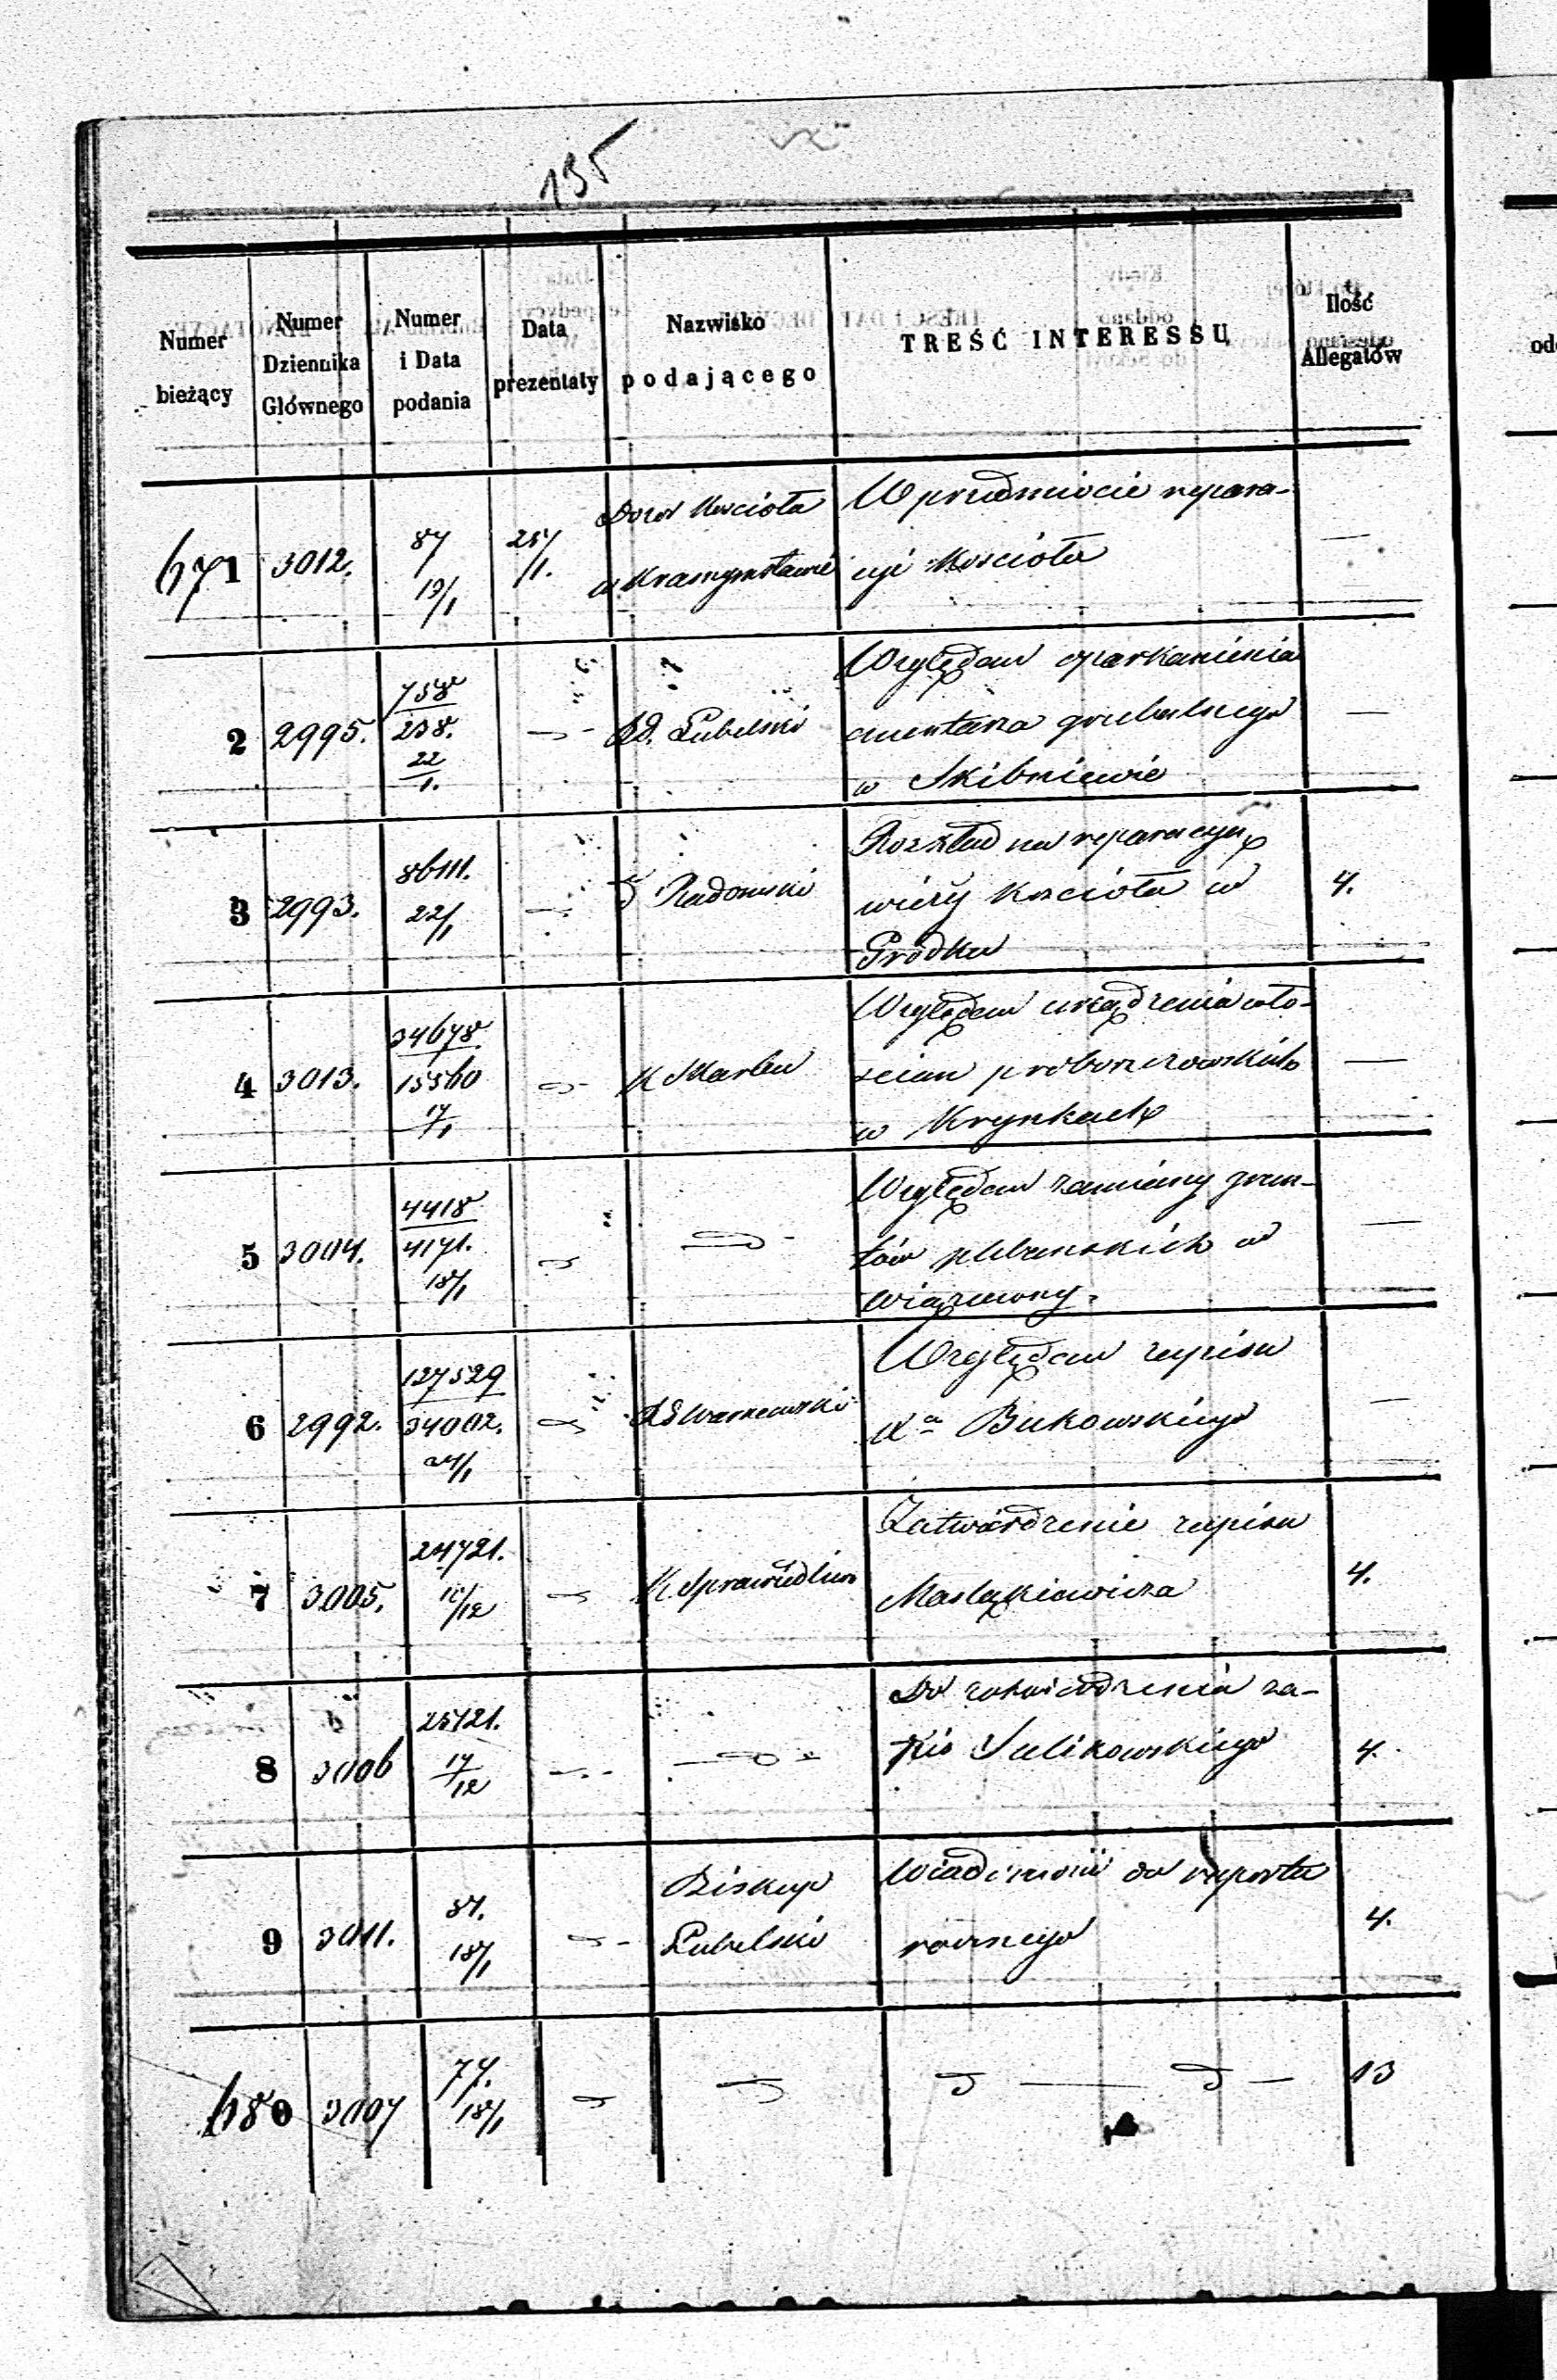 135
Numer bieżący
Numer Dziennika Głównego
Numer i Data podania
Data prezentaty
Nazwisko podającego
TREŚĆ INTERESSU
Ilość Allegatów
671 3012. 87 19/1 25/1. Dozór Kościoła W przedmiocie repara-
w Krasnymstawie cyi Kościoła —
2 2995. 758 238. 22/1. Rd. Lubelski Względem oparkanienia
cmentarza grzebalnego —
w Skibniewie
3 2993. 22/1 Radomski Rozkład na reparacyę
wieży Kościoła w 4.
Gródku
4 3013. 34678 15560 17/1 K Skarbu Względem urządzenia wło-
ścian proboszczowskich —
w Krynkach
5 3004. 4418 4171. 18/1 Względem zamiany grun-
tów plebańskich w —
Wiązowny.
6 2992. 127529 34002. Warszawski Względem zapisu
Xa Bukowskiego —
7 3005. 24721. K. Sprawiedliw Zatwierdzenie zapisu
Maslakiewicza 4.
8 3006 25121. 17/12 Do zatwierdzenia za-
pis Sulikowskiego 4.
9 3011. 87. 18/1 Biskup Wiadomość do raportu
Lubelski rocznego 4.
680 3007 77. 18/1 13